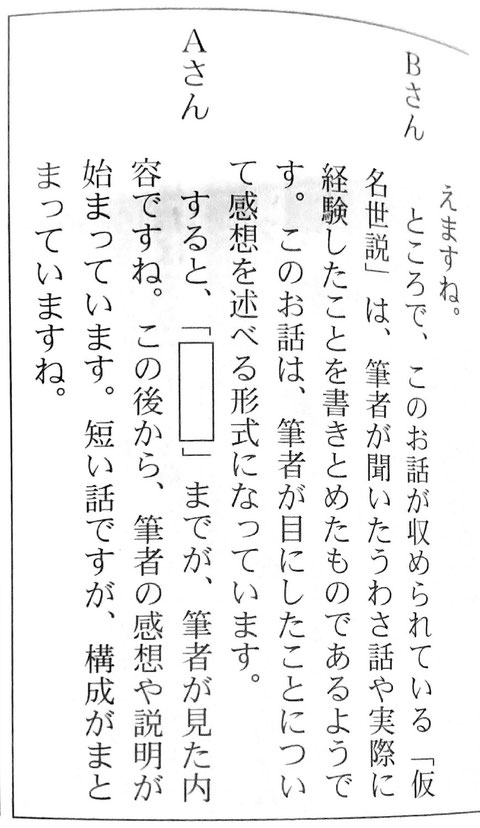 えますね。
Bさん　ところで、このお話が収められている「仮
名世説」は、筆者が聞いたうわさ話や実際に
経験したことを書きとめたものであるようで
す。このお話は、筆者が目にしたことについ
て感想を述べる形式になっています。
Aさん　すると、「　」までが、筆者が見た内
容ですね。この後から、筆者の感想や説明が
始まっています。短い話ですが、構成がまと
まっていますね。